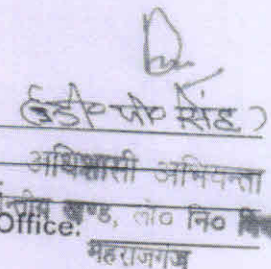 (डी० पी० सिंह)
अधिशासी अभियन्ता
प्रान्तीय खण्ड, लो० नि०
Office:
महराजगंज